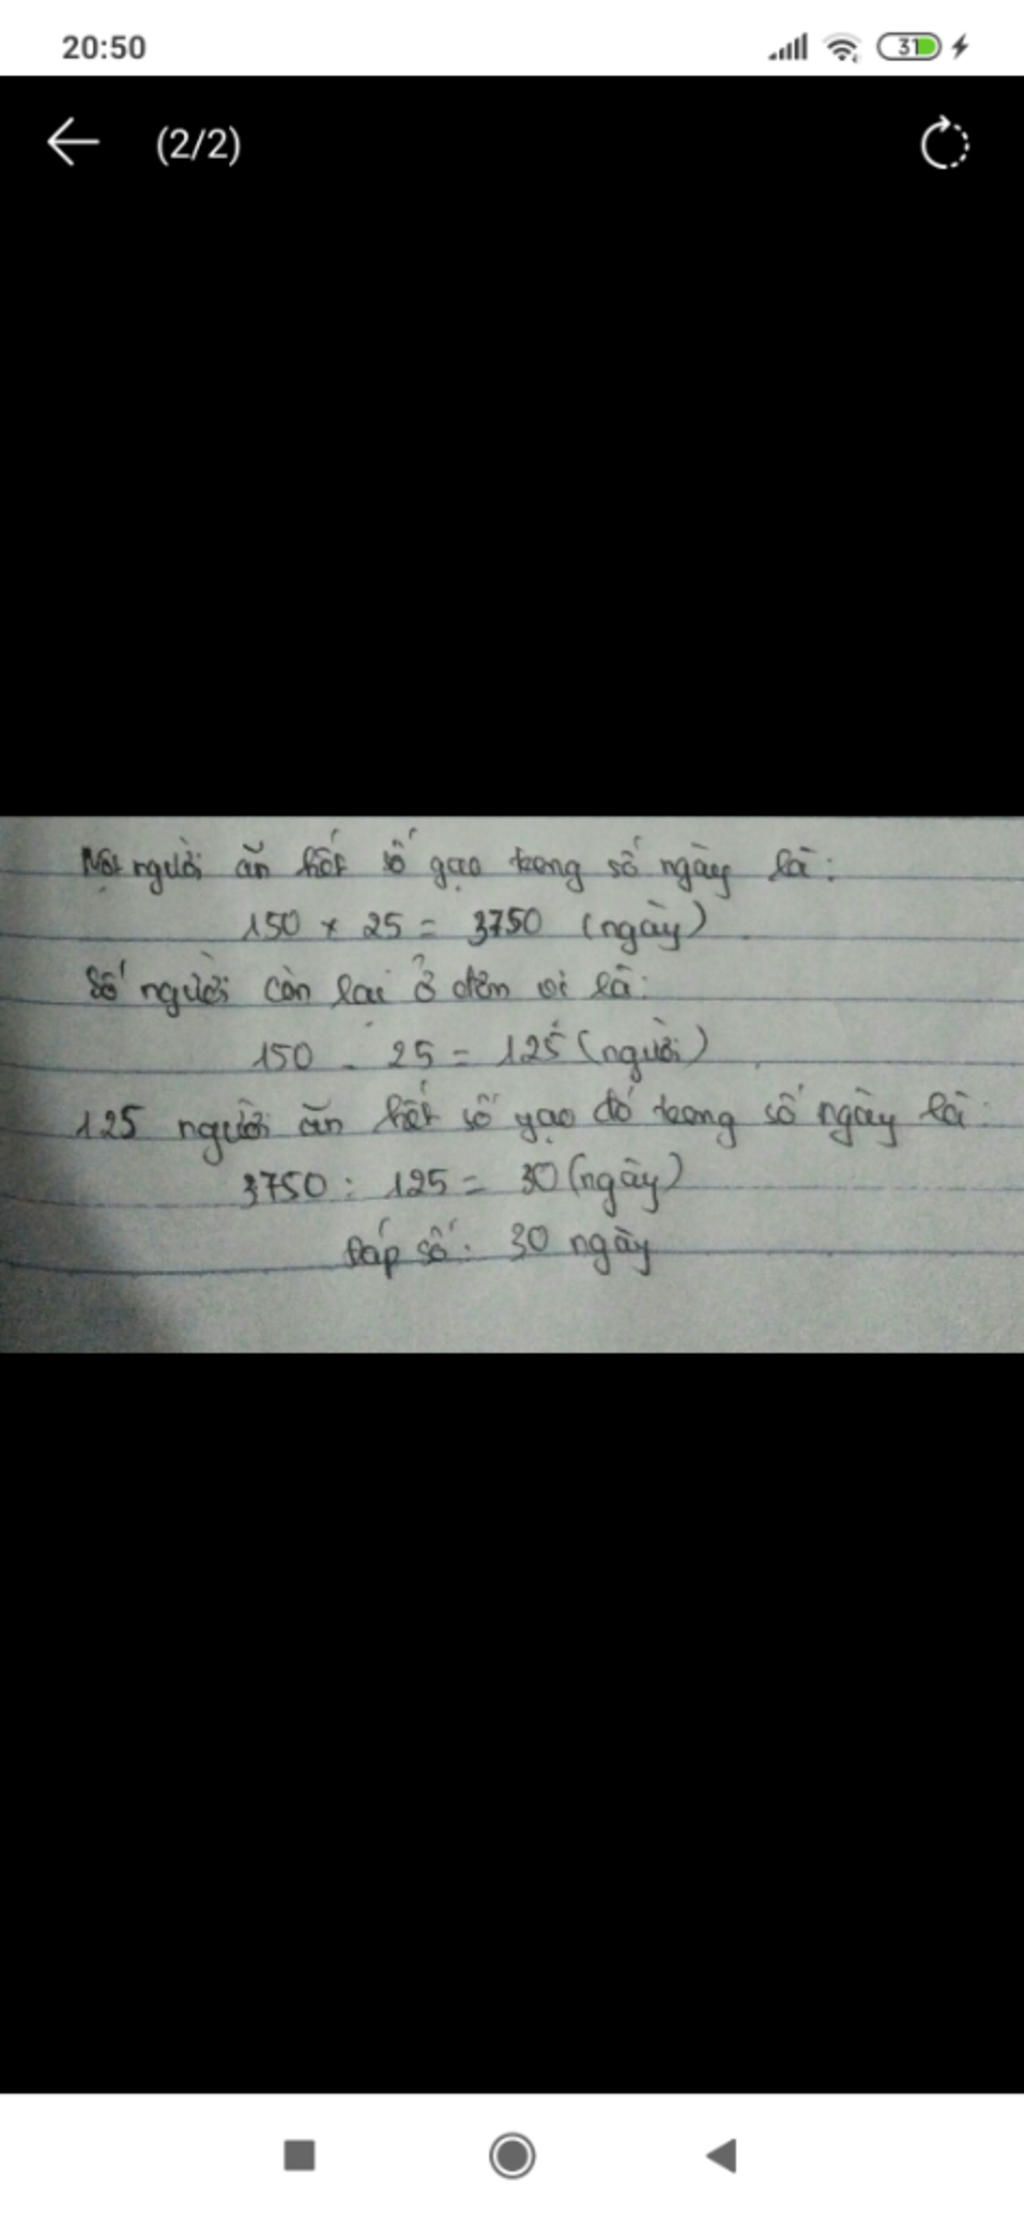 20:50
31
(2/2)
Một người ăn hết số gạo trong số ngày là:
150 x 25 = 3750 (ngày)
Số người còn lại ở đơn vị là:
150 - 25 = 125 (người)
125 người ăn hết số gạo đó trong số ngày là:
3750 : 125 = 30 (ngày)
Đáp số: 30 ngày